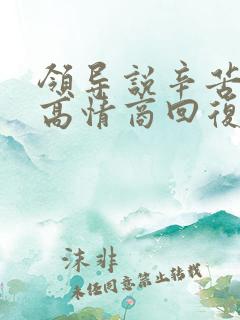 領导說辛苦
高情商回復
沫非
未经同意禁止转载